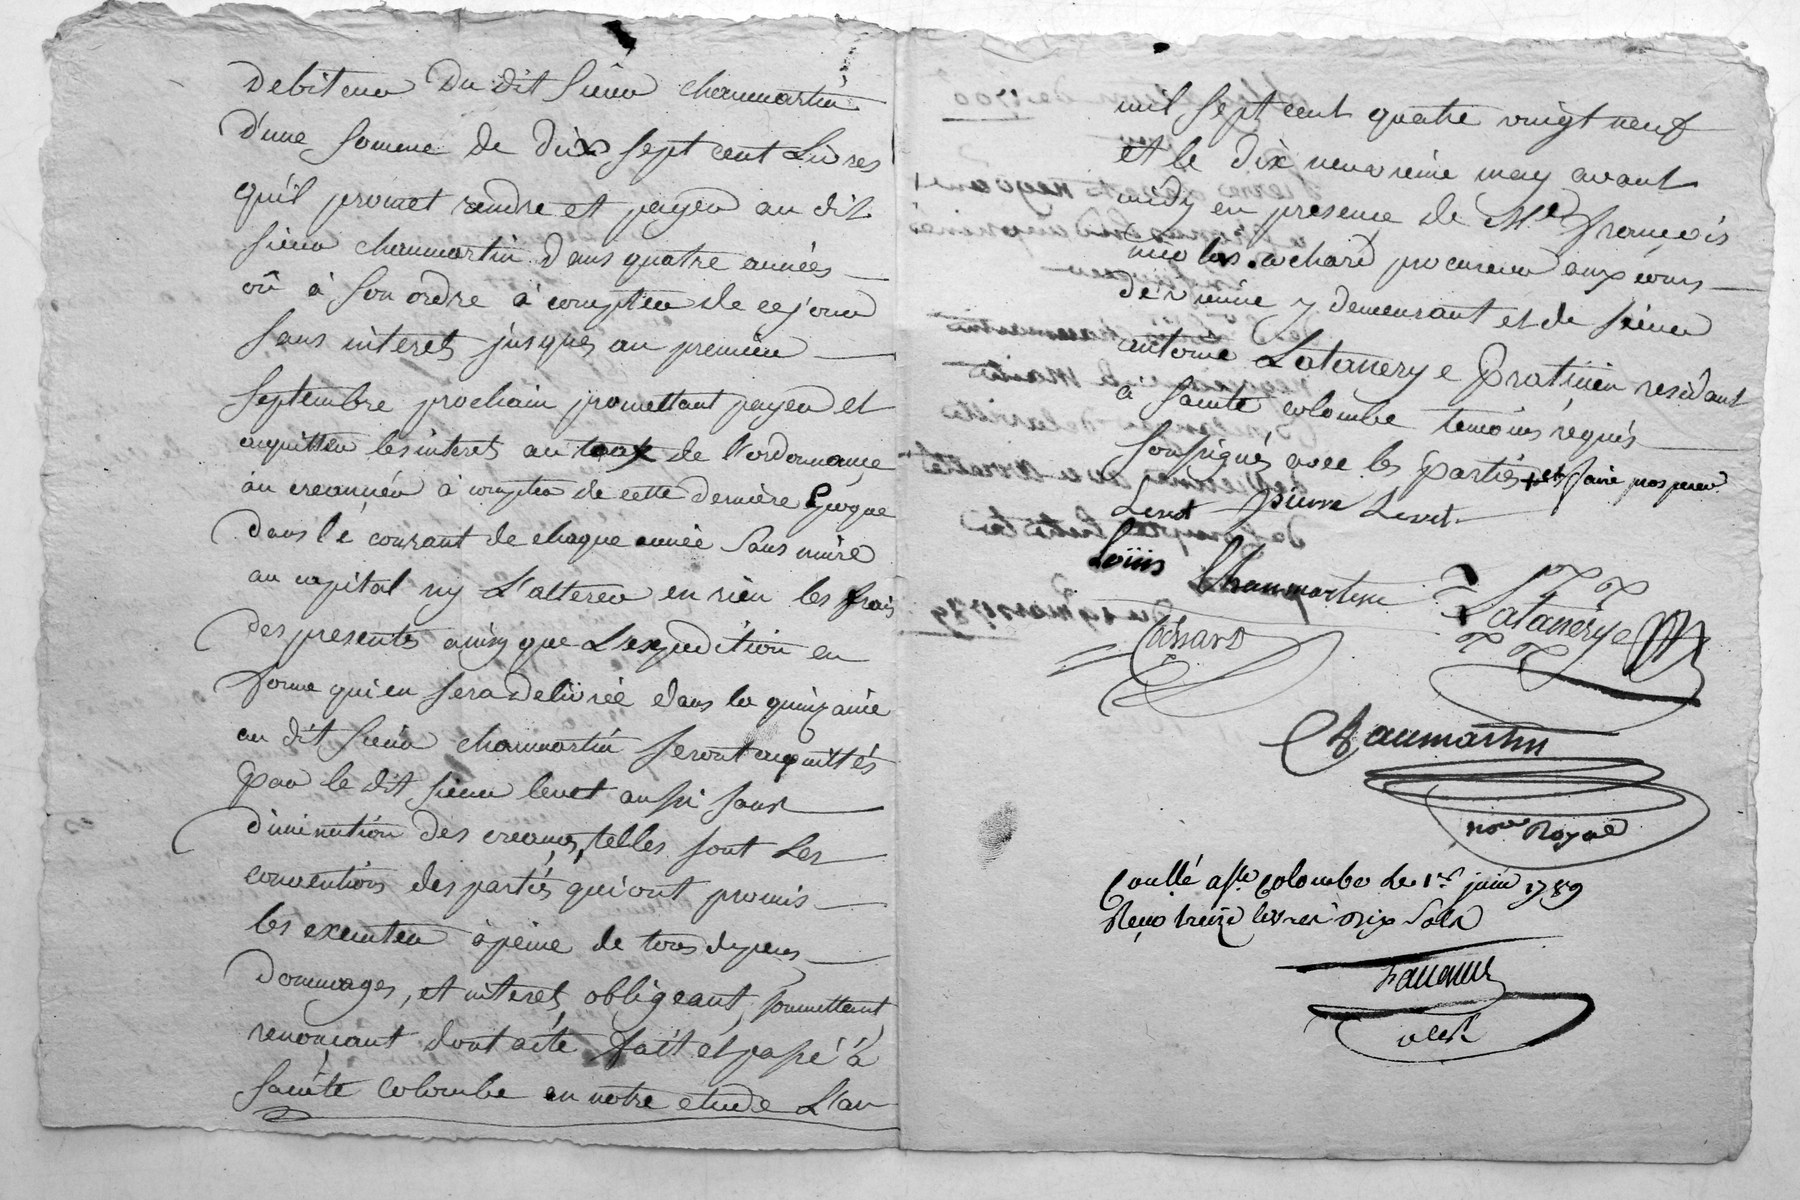 debiteur Du dit Sieur chaumartin
D'une somme de dix sept cent Livres
qu'il promet rendre et payer au dit
sieur chaumartin Dans quatre années
où à son ordre à compter de ce jour
sans interets jusques au premier
septembre prochain promettant payer et
acquitter les interet au taux de l'ordonnance
au creancier à compter de cette derniere Epoque
Dans le courant de chaque année sans nuire
au capital ny L'alterer en rien les frais
Des presentes ainsy que L'expedition en
forme qui en sera Delivrée dans la quinzaine
au dit sieur chaumartin seront acquittés
par le dit sieur levet aussi sans
diminution des creances, telles sont Les
conventions des parties qui ont promis
les executer à peine de tous depens
Dommages, et interets, obligeant, soumettant
renonçant dont acte fait et passé à
sainte Colombe en notre etude L'an
mil sept cent quatre vingt neuf
et le Dix neuvieme may avant
midy en presence de Me françois
nicolas cochard procureur aux cours
de vienne y demeurant et de sieur
antoine Latanerye praticien residant
à sainte Colombe temoins requis
soussignés avec les parties +
Levet pierre Levet
Loüis Chaumartin Latanerye
Cochard
Chaumartin
nore Royal
Conllé a Ste Colombe Le 1er juin 1789
Reçu treize livres dix Sols